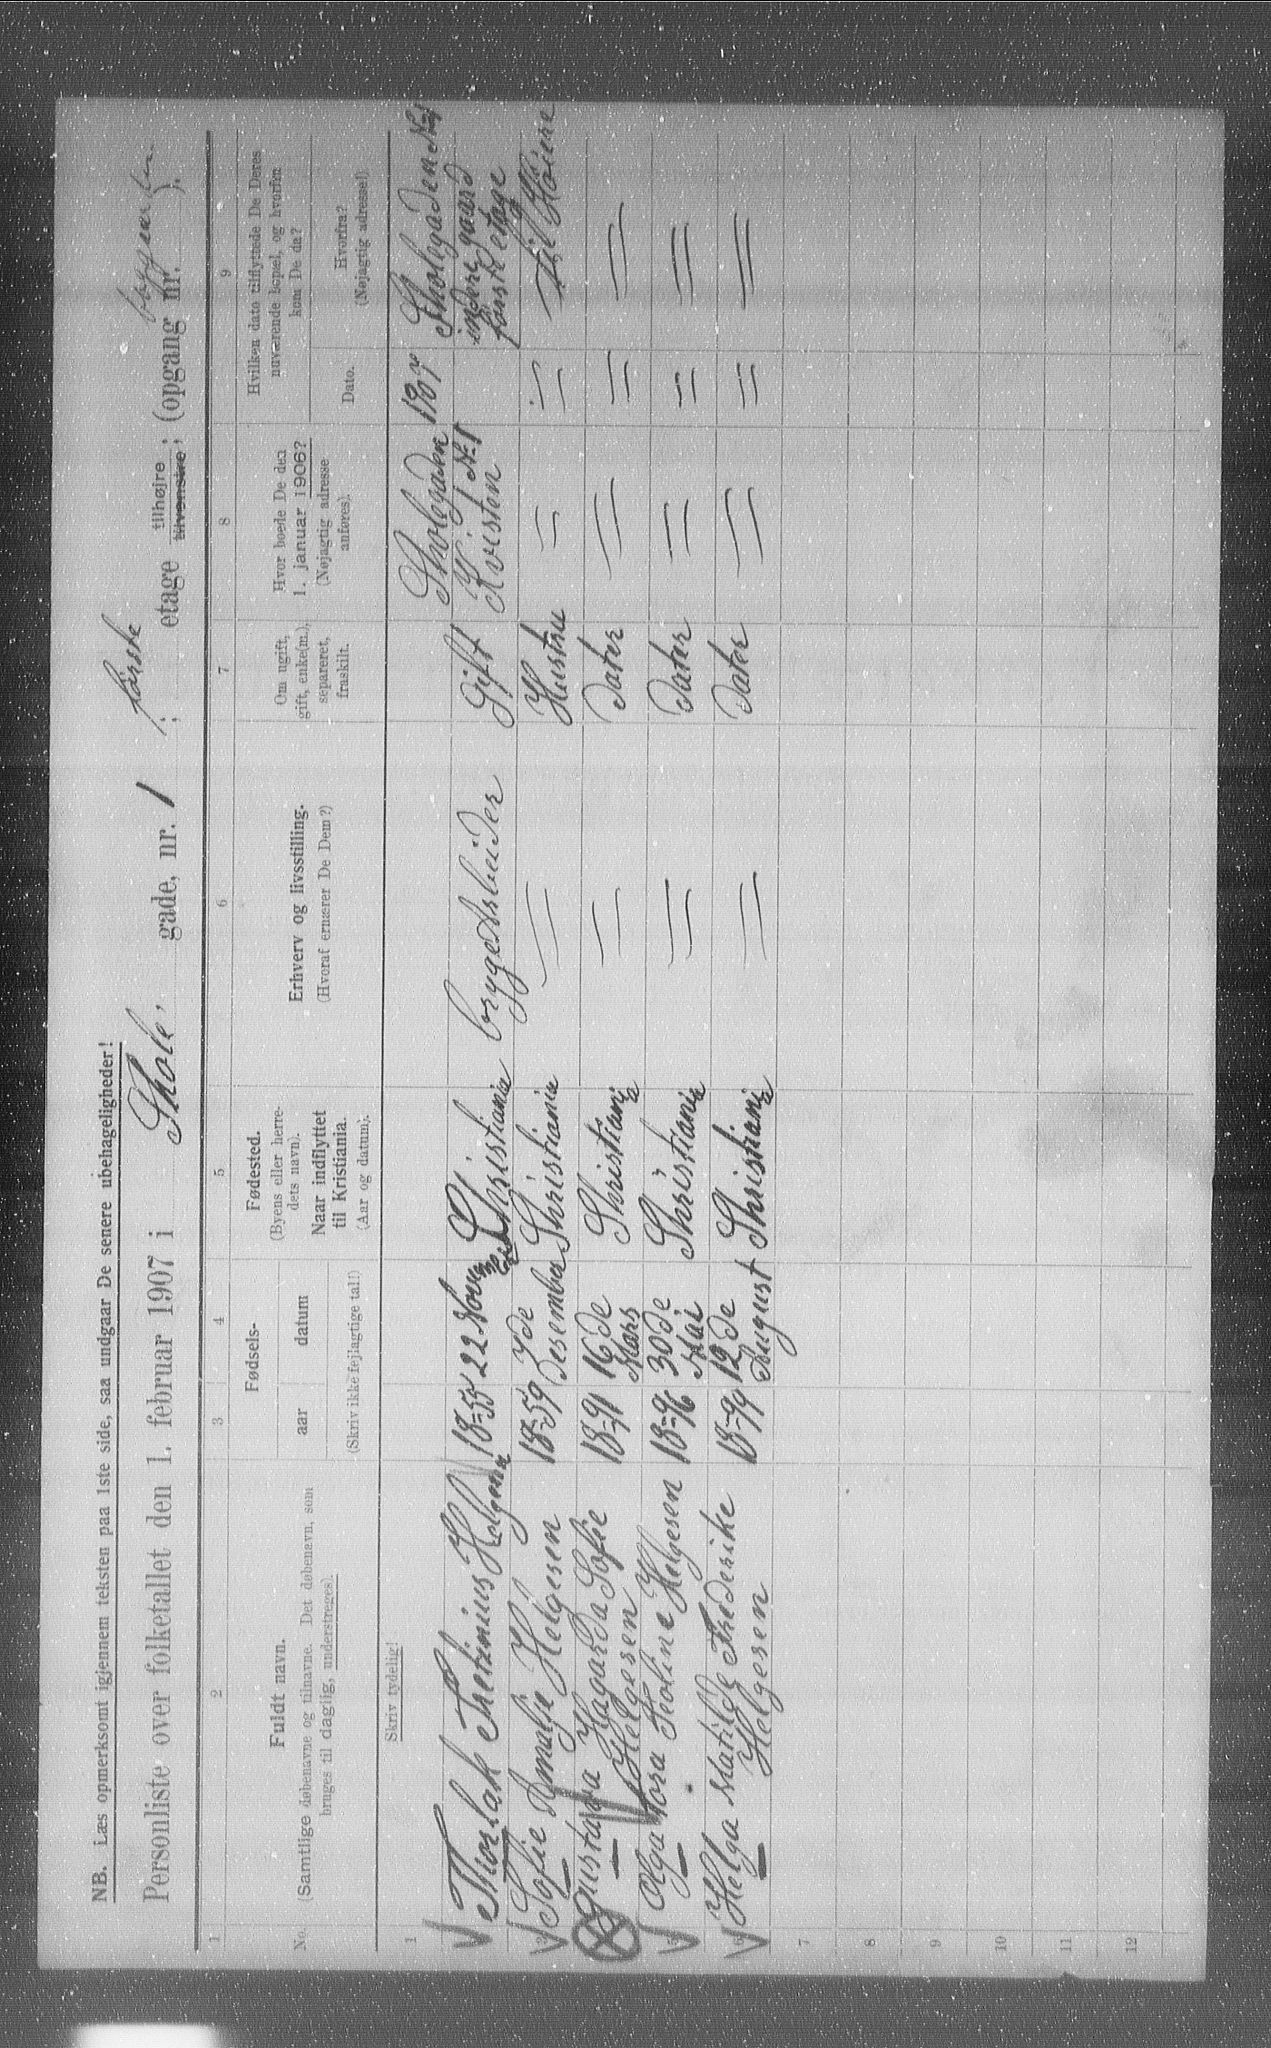 NB. Læs opmerksomt igjennem teksten paa 1ste side, saa undgaar De senere ubehageligheder!
Personliste over folketallet den 1. februar 1907 i Skole, gade, nr. 1; første etage tilhøjre tilvenstre; (opgang nr. ).
1 2 3 4 5 6 7 8 9
No.
Fuldt navn.
(Samtlige døbenavne og tilnavne. Det døbenavn, som
bruges til daglig, understreges).
Fødsels-
aar datum
(Skriv ikke fejlagtige tal!)
Fødested.
(Byens eller herre-
dets navn).
Naar indflyttet
til Kristiania.
(Aar og datum).
Erhverv og livsstilling.
(Hvoraf ernærer De Dem?)
Om ugift,
gift, enke(m.),
separeret,
fraskilt.
Hvor boede De den
1. januar 1906?
(Nøjagtig adresse
anføres).
Hvilken dato tilflyttede De Deres
nuværende bopæl, og hvorfra
kom De da?
Dato.
Hvorfra?
(Nøjagtig adresse!)
Skriv tydelig!
1
Thorlak Helgesen 18=55 22 Christiania bryge Arbeider Gift Skolegaden No 1 Kvisten 1907 Skolegaden No 1 indere gaard første etage
3 Sofie Amalie Helgesen 18=59 7de Desember Christiania Hustru Til Høire
Gustava Hagarda Sofie Helgesen 18=91 16de Mars Christiania Dater
5 Olga Tora Helgesen 18=96 30de Mai Christiania Dater
6 Helga Matilde Frederike Helgesen 18=99 12de August Christiania Dater
7
8
9
10
11
12